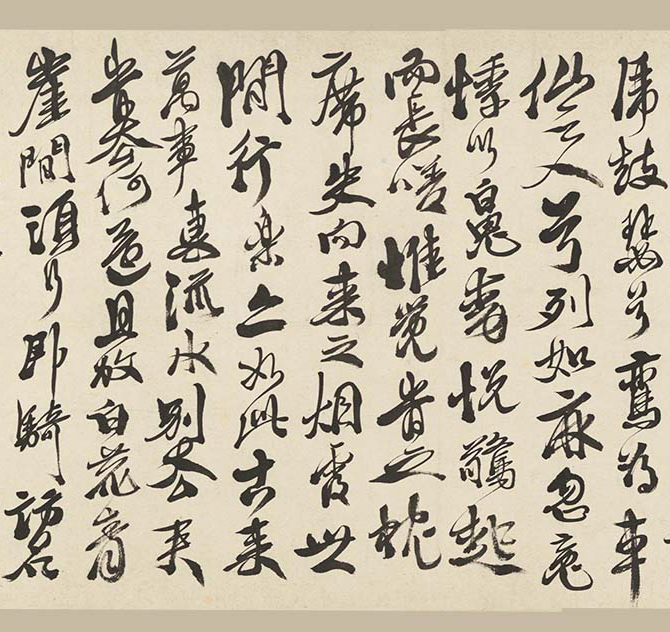 虎鼓瑟兮鸞為車
仙之人兮列如麻忽魂
悸以魄動怳驚起
而長嗟惟覺旹之枕
席失向來之烟霞世
間行樂亦如此古來
萬事東流水別
旹何還且放白鹿青
崖間須行即騎訪名